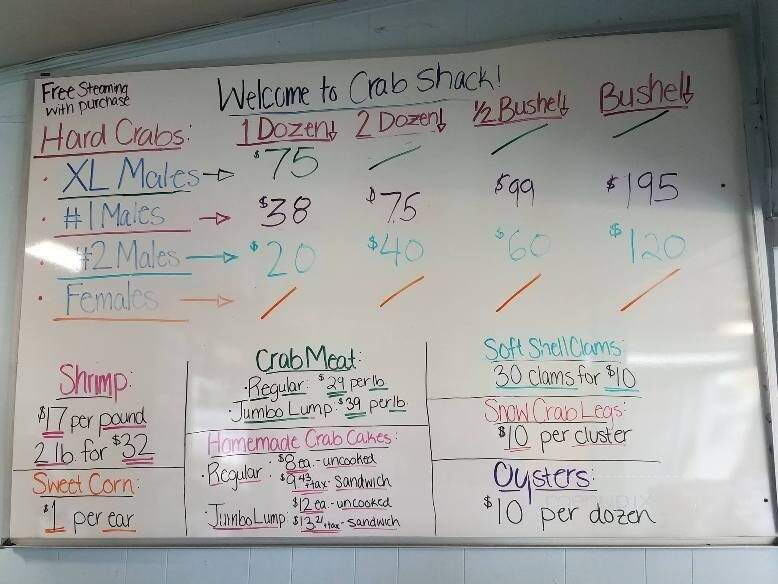 Free Steaming
with purchase
Welcome to Crab Shack!
Hard Crabs: 1 Dozen↓ 2 Dozen↓ ½ Bushel↓ Bushel↓
· XL Males → $75 / / /
· #1 Males → $38 $75 $99 $195
· #2 Males → $20 $40 $60 $120
· Females → / / / /
Shrimp:
$17 per pound
2 lb. for $32
Sweet Corn:
$1 per ear
Crab Meat:
·Regular: $29 per lb
·Jumbo Lump: $39 per lb.
Homemade Crab Cakes:
·Regular: $8 ea. - uncooked
$9.43 +tax - Sandwich
·Jumbo Lump: $12 ea. - uncooked
$13.21 +tax - sandwich
Soft Shell Clams:
30 clams for $10
Snow Crab Legs:
$10 per cluster
Oysters:
$10 per dozen